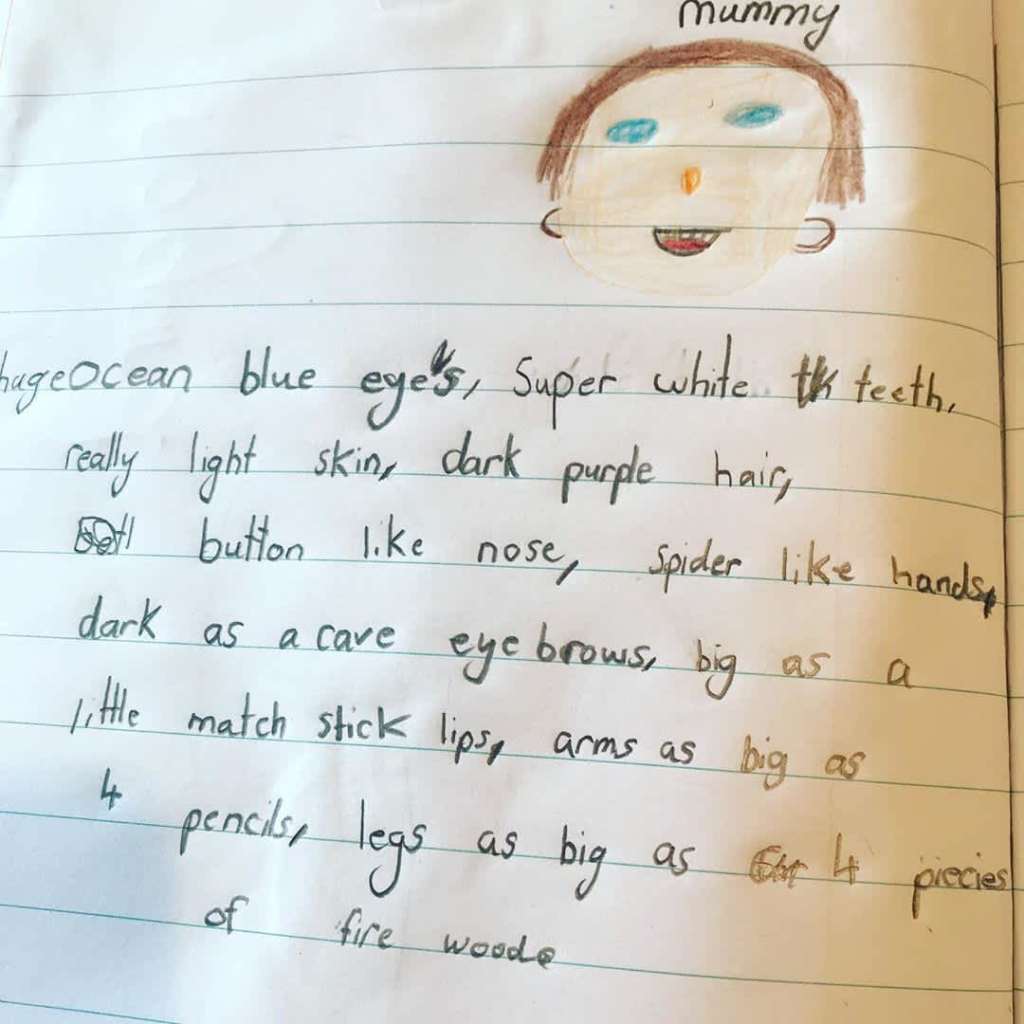 mummy
huge Ocean blue eye's, Super white teeth,
really light skin, dark purple hair,
button like nose, spider like hands,
dark as a cave eye brows, big as a
little match stick lips, arms as big as
4 pencils, legs as big as 4 piecies
of fire wood.